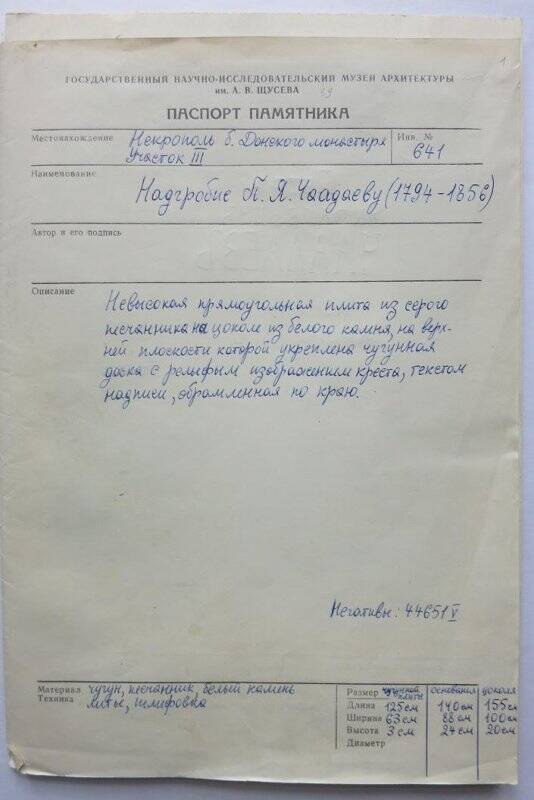 1
ГОСУДАРСТВЕННЫЙ НАУЧНО-ИССЛЕДОВАТЕЛЬСКИЙ МУЗЕЙ АРХИТЕКТУРЫ
им. А. В. ЩУСЕВА
ПАСПОРТ ПАМЯТНИКА
Местонахождение Некрополь б. Донского монастыря Инв. №
Участок III 641
Наименование
Надгробие П. Я. Чаадаеву (1794-1856)
Автор и его подпись
Описание
Невысокая прямоугольная плита из серого
песчанника на цоколе из белого камня, на верх-
ней плоскости которой укреплена чугунная
доска с рельефным изображением креста, текстом
надписи, обрамленная по краю.
Негативы: 44651 V
Материал чугун, песчанник, белый камень
Техника литье, шлифовка
Размер чугунной плиты основания цоколя
Длина 125 см 140 см 155 см
Ширина 63 см 88 см 100 см
Высота 3 см 24 см 20 см
Диаметр